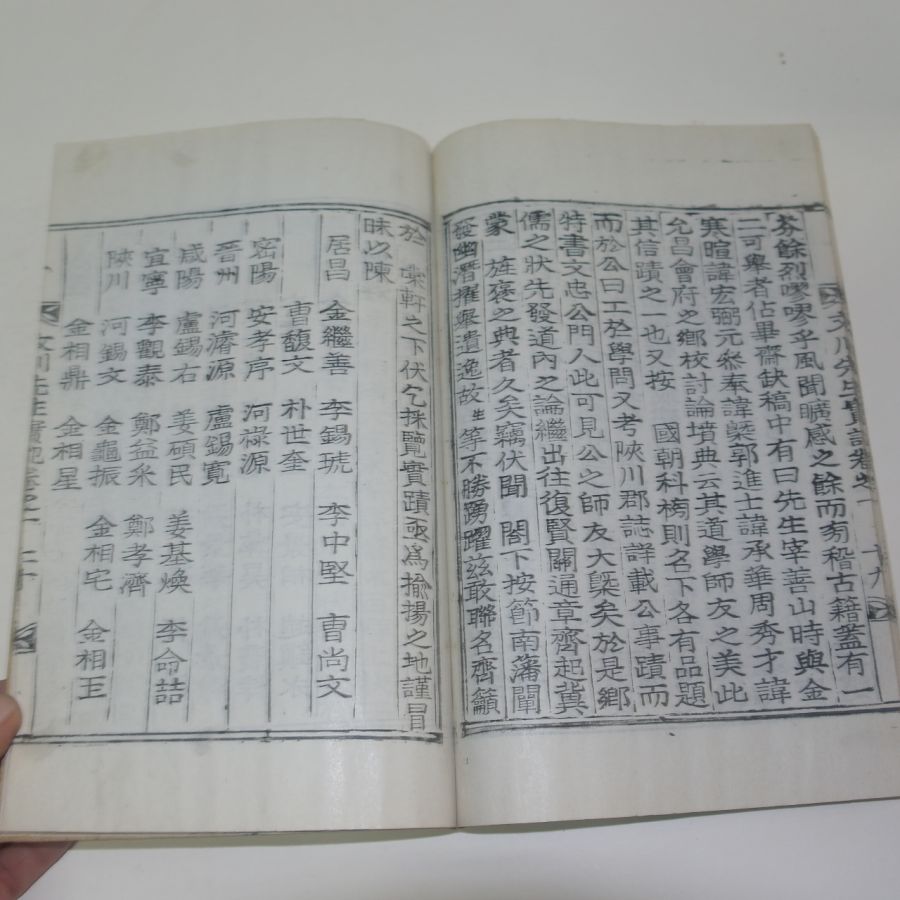 芬餘烈嘐嘐乎風聞曠感之餘而旁稽古籍蓋有一
二可舉者佔畢齋缺稿中有曰先生宰善山時與金
寒暄諱宏弼元參奉諱槩郭進士諱承華周秀才諱
允昌會府之鄕校討論墳典云其道學師友之美此
其信蹟之一也又按 國朝科榜則名下各有品題
而於公曰工於學問又考陜川郡誌詳載公事蹟而
特書文忠公門人此可見公之師友大槩矣於是鄕
儒之狀先發道內之論繼出往復賢關通章齊起冀
蒙 旌褒之典者久矣竊伏聞 閤下按節南藩闡
發幽潛擢擧遺逸故生等不勝踴躍玆敢聯名齊籲
川先生實記卷之一 十九
於 棠軒之下伏乞採覽實蹟亟爲揄揚之地謹冒
昧以陳
居昌 金繼善 李錫琥 李中堅 曹尙文
曹馥文 朴世奎
密陽 安孝序 河祿源
晉州 河濬源 盧錫寬
咸陽 盧錫右 姜碩民 姜基煥 李命喆
宜寧 李觀泰 鄭益采 鄭孝濟
陜川 河錫文 金龜振 金相宅 金相玉
金相鼎 金相星
川先生實記卷之一 二十